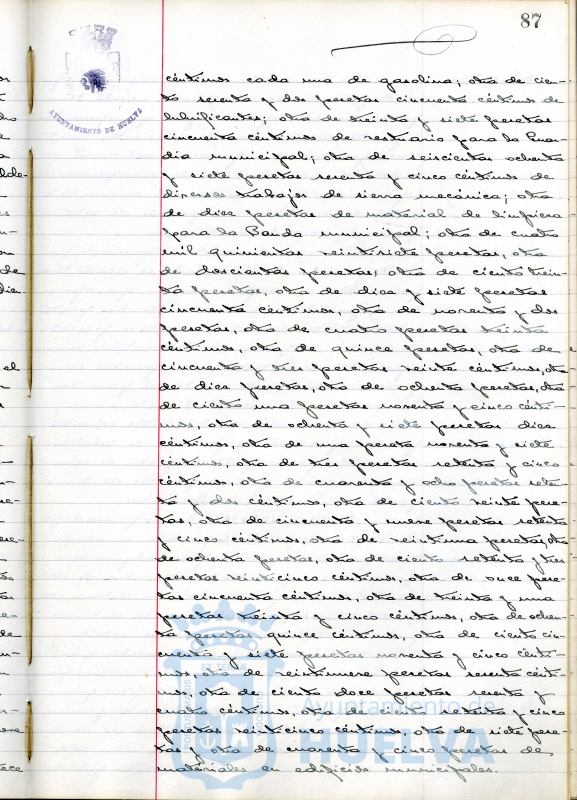 87
AYUNTAMIENTO DE HUELVA
céntimos cada una de gasolina; otra de cien-
to sesenta y dos pesetas cincuenta céntimos de
lubrificantes; otra de treinta y siete pesetas
cincuenta céntimos de vestuario para la Guar-
dia municipal; otra de seiscientas ochenta
y siete pesetas sesenta y cinco céntimos de
diversos trabajos de sierra mecánica; otra
de diez pesetas de material de limpieza
para la Banda municipal; otra de cuatro
mil quinientas veintisiete pesetas, otra
de doscientas pesetas, otra de ciento trein-
ta pesetas, otra de diez y siete pesetas
cincuenta céntimos, otra de noventa y dos
pesetas, otra de cuatro pesetas treinta
céntimos, otra de quince pesetas, otra de
cincuenta y tres pesetas veinte céntimos, otra
de diez pesetas, otra de ochenta pesetas, otra
de ciento una pesetas noventa y cinco cénti-
mos, otra de ochenta y siete pesetas diez
céntimos, otra de una peseta noventa y siete
céntimos, otra de tres pesetas setenta y cinco
céntimos, otra de cuarenta y ocho pesetas seten-
ta y dos céntimos, otra de ciento veinte pese-
tas, otra de cincuenta y nueve pesetas setenta
y cinco céntimos, otra de veintiuna pesetas, otra
de ochenta pesetas, otra de ciento setenta y tres
pesetas veinticinco céntimos, otra de once pese-
tas cincuenta céntimos, otra de treinta y una
pesetas treinta y cinco céntimos, otra de ochen-
ta pesetas quince céntimos, otra de ciento cin-
cuenta y siete pesetas noventa y cinco cénti-
mos, otra de veintinueve pesetas sesenta cénti-
mos, otra de ciento doce pesetas sesenta y
cuatro céntimos, otra de ciento setenta y cinco
pesetas veinticinco céntimos, otra de siete pese-
tas y otra de cuarenta y cinco pesetas de
materiales en edificios municipales.
Ayuntamiento de
HUELVA